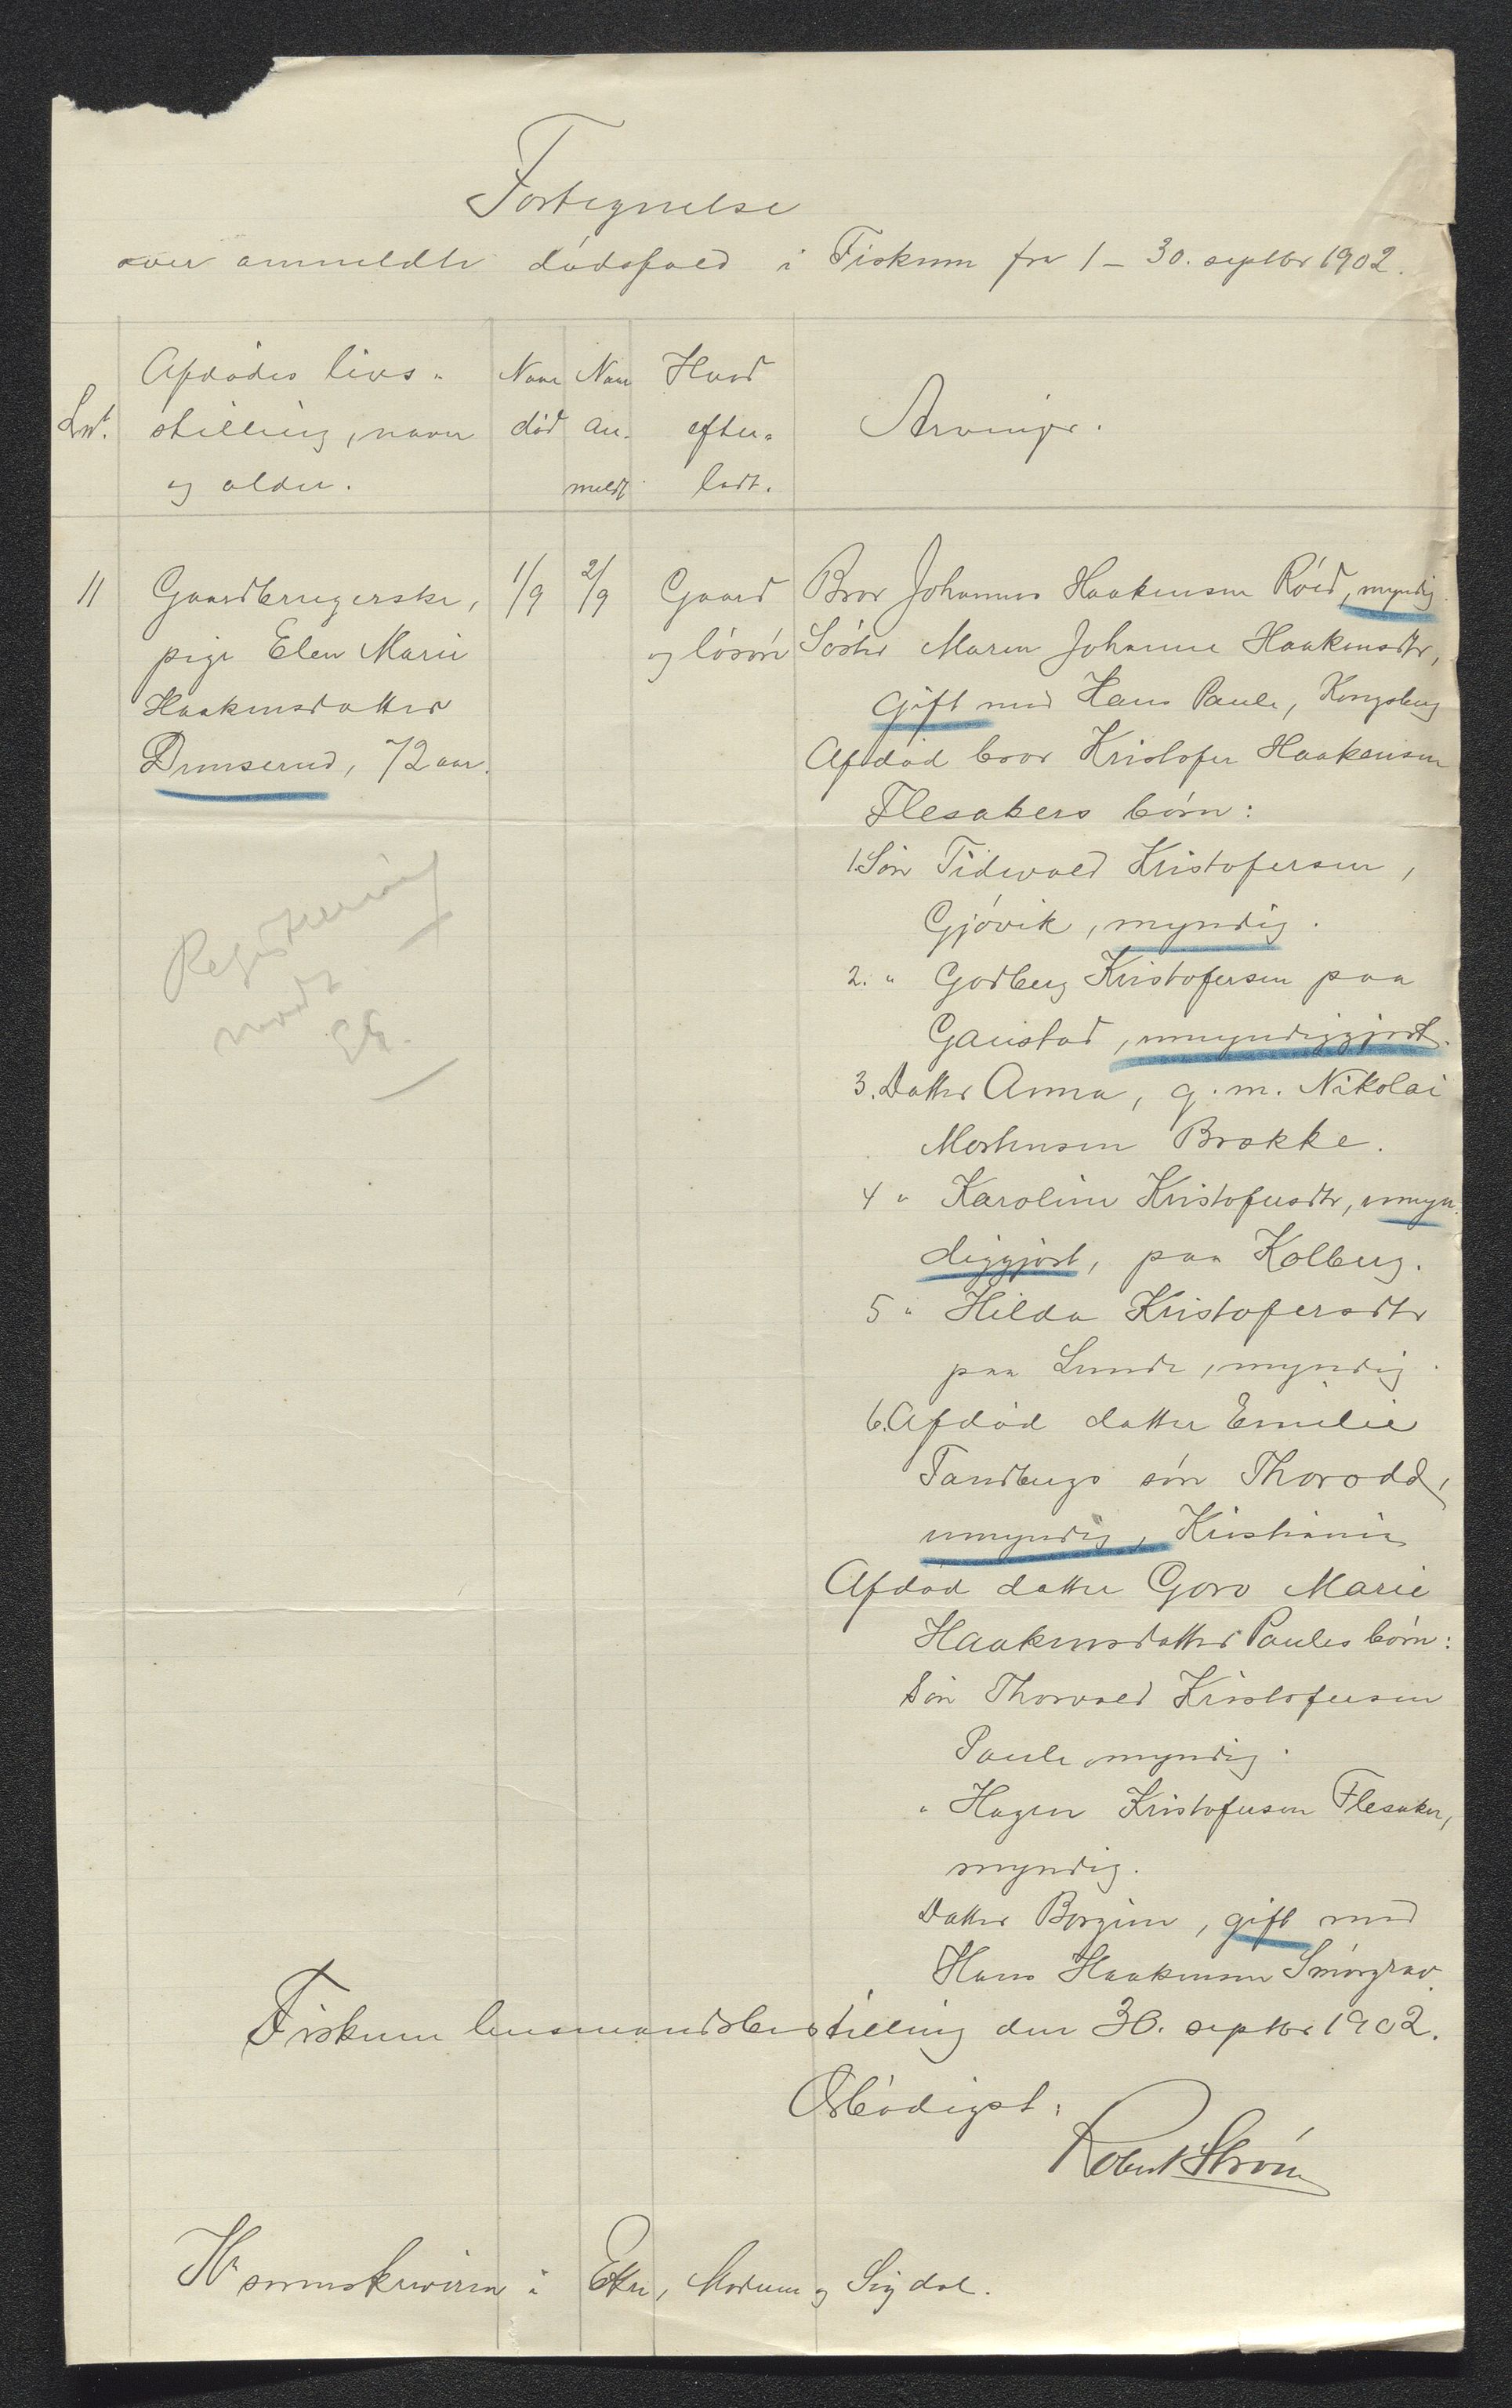 Fortegnelse
over anmeldte dødsfald i Fiskum fra 1 – 30. septbr 1902.
Lnr.
Afdødes livs-
stilling, navn
og alder.
Naar
død
Naar
an-
meldt
Hvad
efter-
ladt.
Arvinger.
11
Gaardbrugerske,
pige Elen Marie
Haakensdatter
Drunserud, 72 aar.
1/9
2/9
Gaard
og løsøre
Bror Johannes Haakensen Røid, myndig.
Søster Maren Johanne Haakensdtr,
gift med Hans Paule, Kongsberg
Afdød bror Kristofer Haakensen
Flesakers børn:
1. Søn Tidevald Kristofersen,
Gjøvik, myndig.
2. " Godberg Kristofersen paa
Gaustad, umyndiggjort.
3. Datter Anna, g. m. Nikolai
Mortensen Brække.
4 " Karoline Kristofersdtr, umyn-
diggjort, paa Kolberg.
5 " Hilda Kristofersdtr
paa Lunde, myndig.
6. Afdød datter Emilie
Tandbergs søn Thorodd,
umyndig, Kristiania
Afdød datter Goro Marie
Haakensdatter Paules børn:
Søn Thorvald Kristofersen
Paule myndig.
" Hagen Kristofersen Flesaker,
myndig.
Datter Borgine, gift med
Hans Haakensen Smørgrav.
Registrering
Fiskum lensmandsbestilling den 30. septbr 1902.
Ærbødigst:
Robert Strøm
Hr sorenskriveren i Eker, Modum og Sigdal.